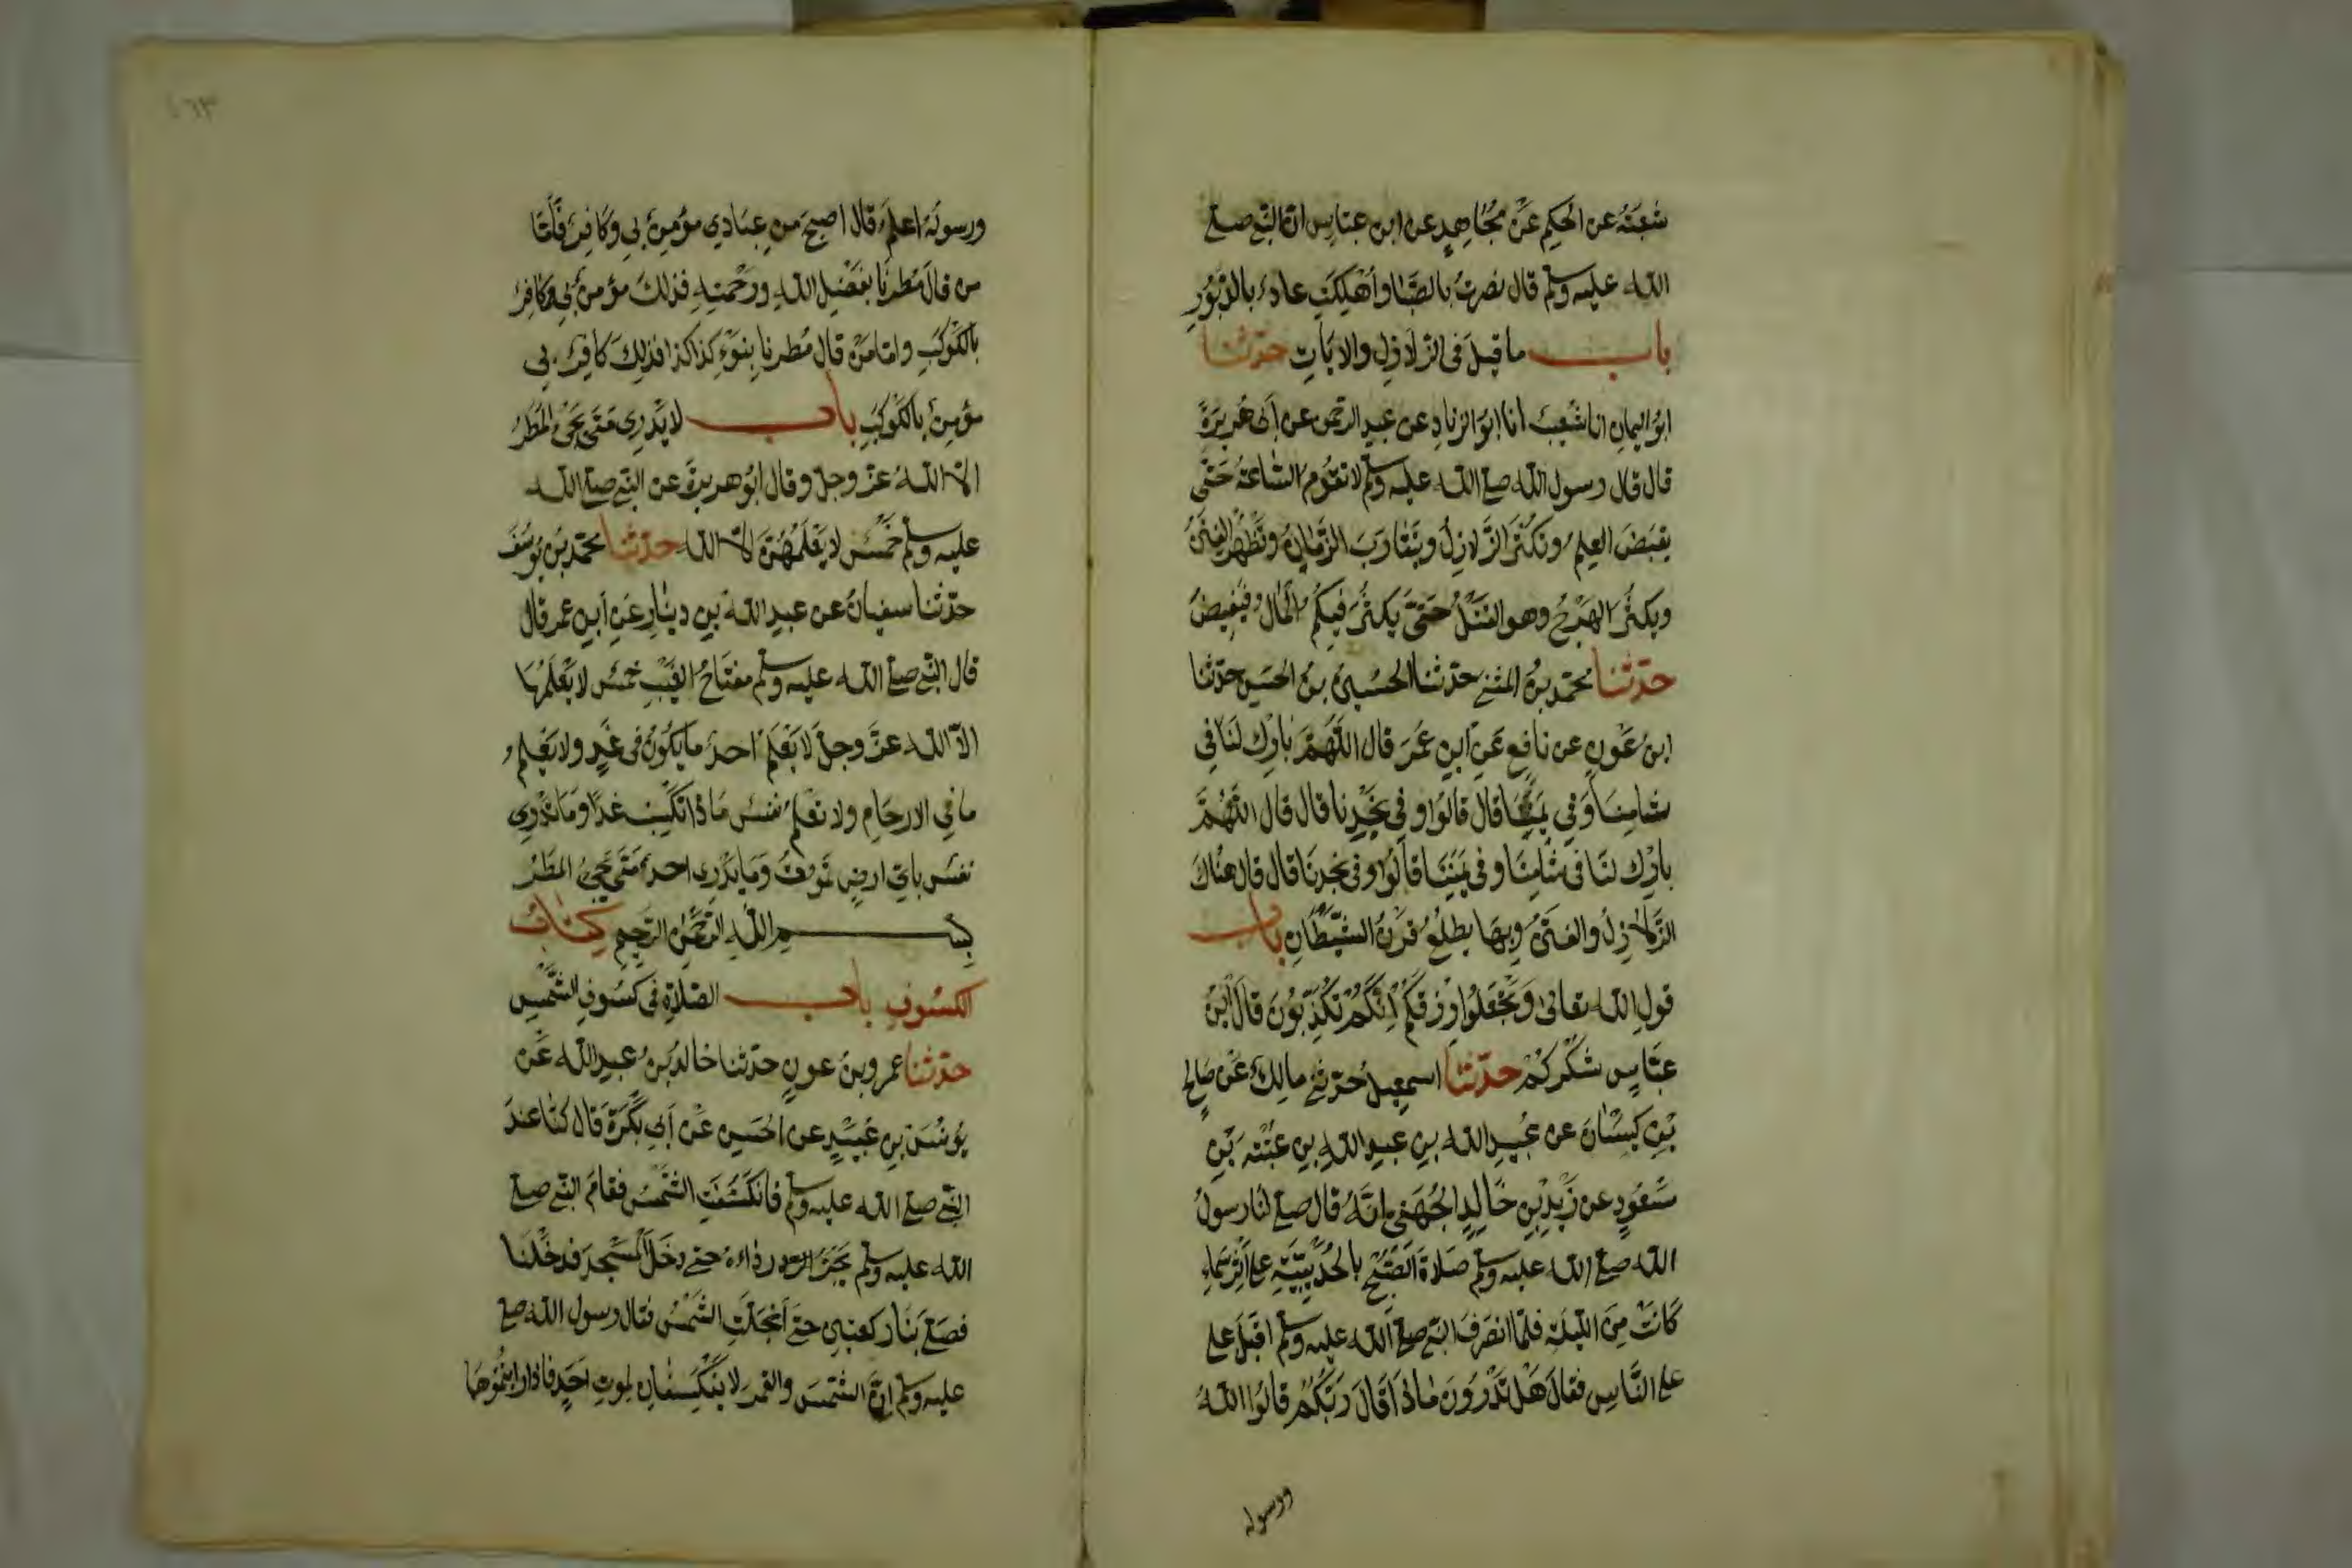 شعبة عن الحكم عن مجاهد عن ابن عباس ان النبي صلى
الله عليه وسلم قال نصرت بالصبا واهلكت عاد بالدبور
باب ما قيل في الزلازل والايات حدثنا
ابو اليمان انا شعيب انا ابو الزناد عن عبد الرحمن عن ابي هريرة
قال قال رسول الله صلى الله عليه وسلم لا تقوم الساعة حتى
يقبض العلم وتكثر الزلازل ويتقارب الزمان وتظهر الفتن
ويكثر الهرج وهو القتل حتى يكثر فيكم المال فيفيض
حدثنا محمد بن المثنى حدثنا الحسين بن الحسن حدثنا
ابن عون عن نافع عن ابن عمر قال اللهم بارك لنا في
شامنا وفي يمننا قال قالوا وفي نجدنا قال قال اللهم
بارك لنا في شامنا وفي يمننا قالوا وفي نجدنا قال قال هناك
الزلازل والفتن وبها يطلع قرن الشيطان باب
قول الله تعالى وتجعلون رزقكم انكم تكذبون قال ابن
عباس شكركم حدثنا اسمعيل حدثني مالك عن صالح
بن كيسان عن عبيد الله بن عبد الله بن عتبة بن
مسعود عن زيد بن خالد الجهني انه قال صلى لنا رسول
الله صلى الله عليه وسلم صلاة الصبح بالحديبية على اثر سماء
كانت من الليلة فلما انصرف النبي صلى الله عليه وسلم اقبل على
على الناس فقال هل تدرون ماذا قال ربكم قالوا الله
ورسوله
ورسوله اعلم قال اصبح من عبادي مؤمن بي وكافر فاما
من قال مطرنا بفضل الله ورحمته فذلك مؤمن بي وكافر
بالكوكب واما من قال مطرنا بنوء كذا كذا فذلك كافر بي
مؤمن بالكوكب باب لا يدري متى يجئ المطر
الا الله عز وجل وقال ابو هريرة عن النبي صلى الله
عليه وسلم خمس لا يعلمهن الا الله حدثنا محمد بن يوسف
حدثنا سفيان عن عبد الله بن دينار عن ابن عمر قال
قال النبي صلى الله عليه وسلم مفتاح الغيب خمس لا يعلمها
الا الله عز وجل لا يعلم احد ما يكون في غد ولا يعلم
ما في الارحام ولا تعلم نفس ماذا تكسب غدا وما تدري
نفس باي ارض تموت وما يدري احد متى يجئ المطر
بسم الله الرحمن الرحيم كتاب
الكسوف باب الصلاة في كسوف الشمس
حدثنا عمرو بن عون حدثنا خالد بن عبد الله عن
يونس بن عبيد عن الحسن عن ابي بكرة قال كنا عند
النبي صلى الله عليه وسلم فانكسفت الشمس فقام النبي صلى
الله عليه وسلم يجر رداءه حتى دخل المسجد فدخلنا
فصلى بنا ركعتين حتى انجلت الشمس فقال رسول الله صلى
عليه وسلم ان الشمس والقمر لا ينكسفان لموت احد فاذا رايتموها